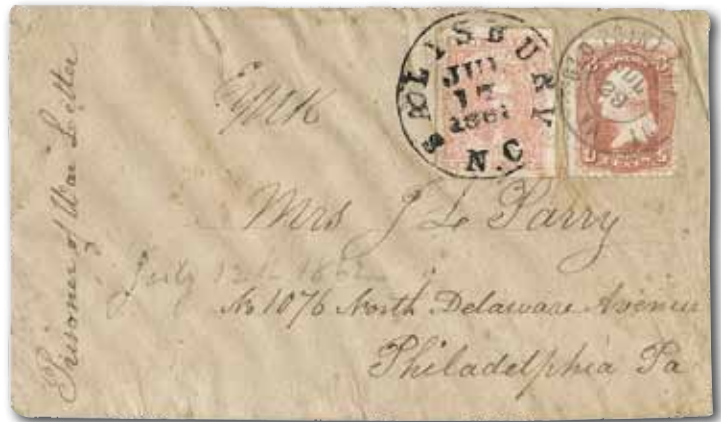 Prisoner of War Letter
SALISBURY
JUL
17
N.C
Mrs J L Parry
July 12th 1862
No 1076 North Delaware Avenue
Philadelphia Pa